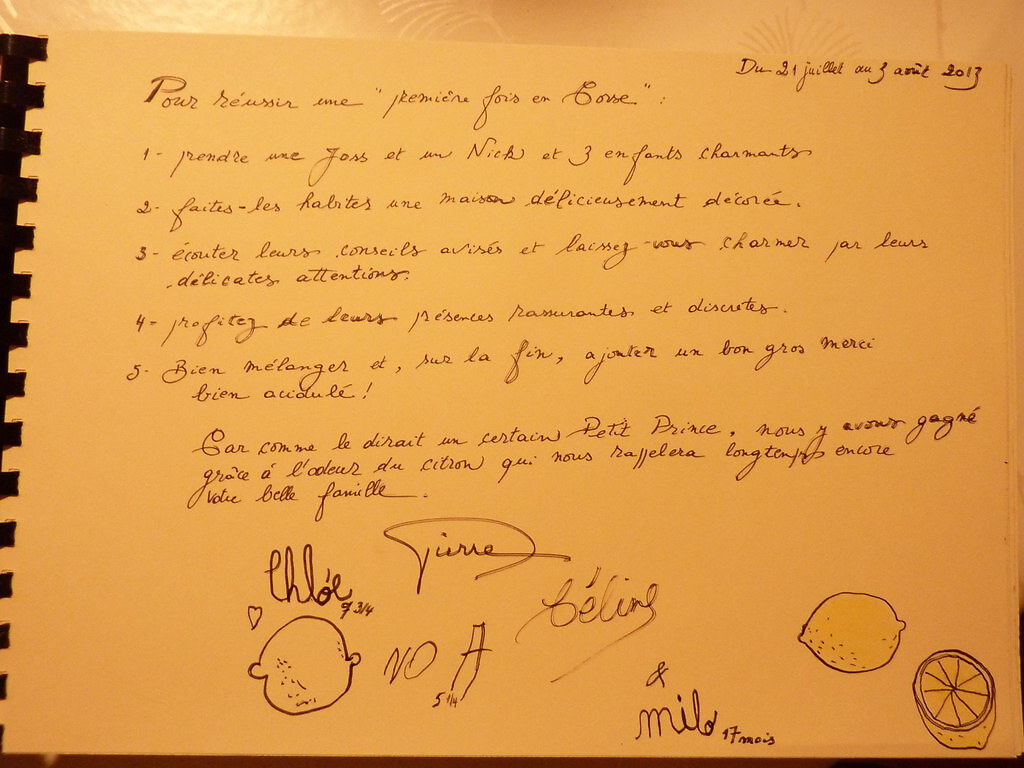 Du 21 juillet au 3 août 2013
Pour réussir une "première fois en Corse" :
1- prendre une Joss et un Nick et 3 enfants charmants
2- faites-les habiter une maison délicieusement décorée.
3- écouter leurs conseils avisés et laissez-vous charmer par leurs
délicates attentions.
4- profitez de leurs présences rassurantes et discrètes.
5- Bien mélanger et, sur la fin, ajouter un bon gros merci
bien acidulé !
Car comme le dirait un certain Petit Prince, nous y avons gagné
grâce à l'odeur du citron qui nous rappelera longtemps encore
votre belle famille.
Pierre
Chlóe
9 3/4
Céline
NOA
5 1/4
&
milo 17 mois